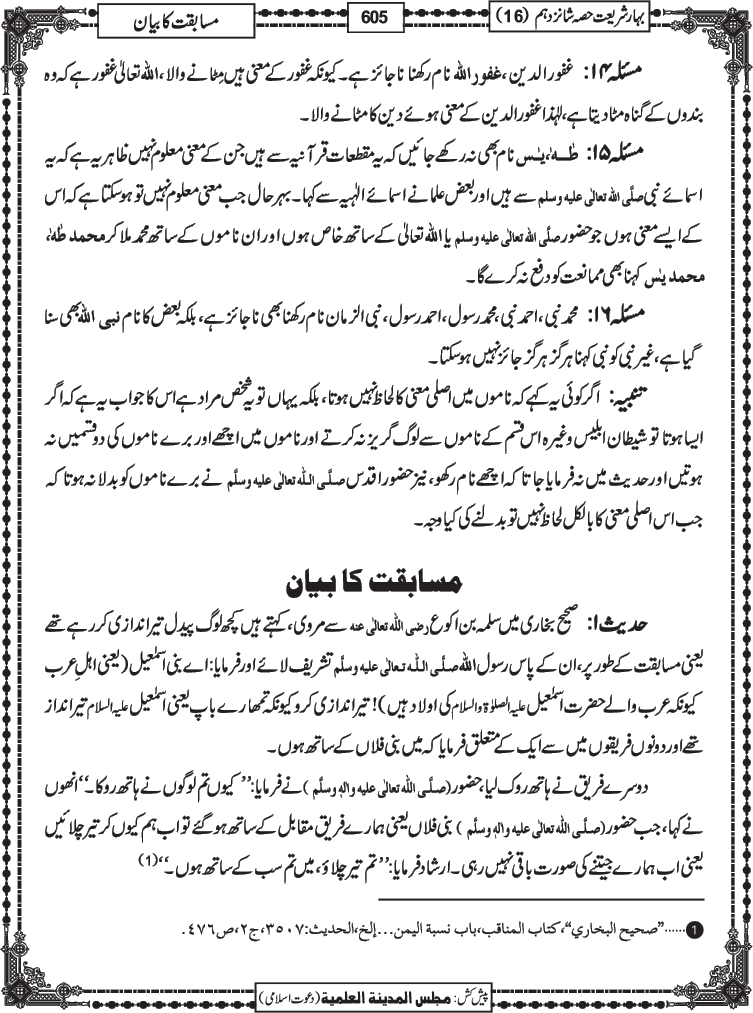 بہارِشریعت حصہ شانزدہم (16)
605
مسابقت کا بیان
مسئلہ ۱۴: غفور الدین، غفور اللہ نام رکھنا ناجائز ہے۔ کیونکہ غفور کے معنی ہیں مٹانے والا، اللہ تعالیٰ غفور ہے کہ وہ
بندوں کے گناہ مٹا دیتا ہے، لہٰذا غفور الدین کے معنی ہوئے دین کا مٹانے والا۔
مسئلہ ۱۵: طٰہٰ، یٰس نام بھی نہ رکھے جائیں کہ یہ مقطعات قرآنیہ سے ہیں جن کے معنی معلوم نہیں ظاہر یہ ہے کہ یہ
اسمائے نبی صلَّی اللہ تعالٰی علیہ وسلم سے ہیں اور بعض علما نے اسمائے الٰہیہ سے کہا۔ بہرحال جب معنی معلوم نہیں تو ہوسکتا ہے کہ اس
کے ایسے معنی ہوں جو حضور صلَّی اللہ تعالٰی علیہ وسلم یا اللہ تعالیٰ کے ساتھ خاص ہوں اور ان ناموں کے ساتھ محمد ملا کر محمد طٰہٰ،
محمد یٰس کہنا بھی ممانعت کو دفع نہ کرے گا۔
مسئلہ ۱۶: محمد نبی، احمد نبی، محمد رسول، احمد رسول، نبی الزمان نام رکھنا بھی ناجائز ہے، بلکہ بعض کا نام نبی اللہ بھی سنا
گیا ہے، غیر نبی کو نبی کہنا ہرگز ہرگز جائز نہیں ہوسکتا۔
تنبیہ: اگر کوئی یہ کہے کہ ناموں میں اصلی معنی کا لحاظ نہیں ہوتا، بلکہ یہاں تو یہ شخص مراد ہے اس کا جواب یہ ہے کہ اگر
ایسا ہوتا تو شیطان ابلیس وغیرہ اس قسم کے ناموں سے لوگ گریز نہ کرتے اور ناموں میں اچھے اور برے ناموں کی دو قسمیں نہ
ہوتیں اور حدیث میں نہ فرمایا جاتا کہ اچھے نام رکھو، نیز حضور اقدس صلَّی اللہ تعالٰی علیہ وسلَّم نے برے ناموں کو بدلا نہ ہوتا کہ
جب اس اصلی معنی کا بالکل لحاظ نہیں تو بدلنے کی کیا وجہ۔
مسابقت کا بیان
حدیث ۱: صحیح بخاری میں سلمہ بن اکوع رضی اللہ تعالٰی عنہ سے مروی، کہتے ہیں کچھ لوگ پیدل تیر اندازی کر رہے تھے
یعنی مسابقت کے طور پر، ان کے پاس رسول اللہ صلَّی اللہ تعالٰی علیہ وسلَّم تشریف لائے اور فرمایا: اے بنی اسمٰعیل (یعنی اہلِ عرب
کیونکہ عرب والے حضرت اسمٰعیل علیہ الصلوٰۃ والسلام کی اولاد ہیں)! تیر اندازی کرو کیونکہ تمھارے باپ یعنی اسمٰعیل علیہ السلام تیر انداز
تھے اور دونوں فریقوں میں سے ایک کے متعلق فرمایا کہ میں بنی فلاں کے ساتھ ہوں۔
دوسرے فریق نے ہاتھ روک لیا، حضور (صلَّی اللہ تعالٰی علیہ والہٖ وسلَّم) نے فرمایا: ’’کیوں تم لوگوں نے ہاتھ روکا۔‘‘ انھوں
نے کہا، جب حضور (صلَّی اللہ تعالٰی علیہ والہٖ وسلَّم) بنی فلاں یعنی ہمارے فریق مقابل کے ساتھ ہوگئے تو اب ہم کیوں کر تیر چلائیں
یعنی اب ہمارے جیتنے کی صورت باقی نہیں رہی۔ ارشاد فرمایا: ’’تم تیر چلاؤ، میں تم سب کے ساتھ ہوں۔‘‘(1)
1......’’صحیح البخاري‘‘، کتاب المناقب، باب نسبة الیمن...إلخ، الحدیث: ۳۵۰۷، ج۲، ص۴۷۶.
پیش کش: مجلس المدینۃ العلمیۃ (دعوتِ اسلامی)